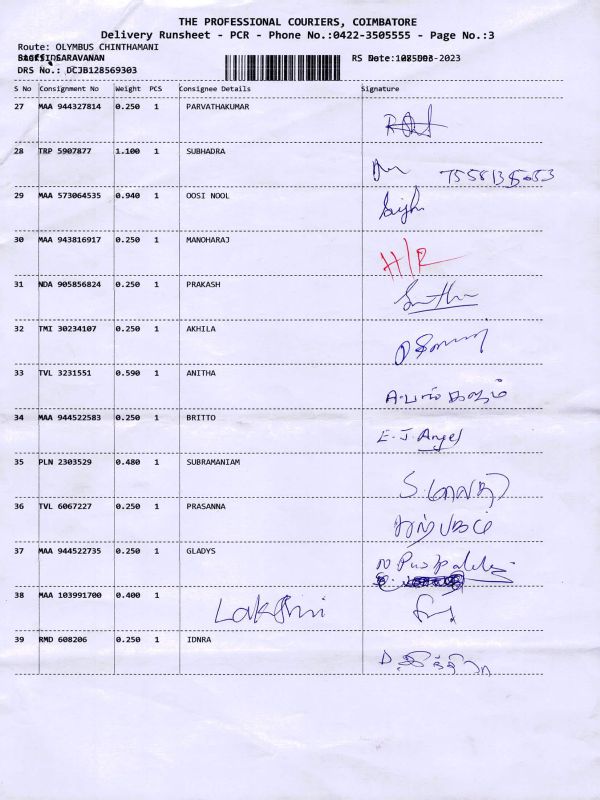 THE PROFESSIONAL COURIERS, COIMBATORE
Delivery Runsheet - PCR - Phone No.:0422-3505555 - Page No.:3
Route: OLYMBUS CHINTHAMANI
SARAVANAN RS Date: -2023
DRS No.: DCJB128569303
S No Consignment No Weight PCS Consignee Details Signature
27 MAA 944327814 0.250 1 PARVATHAKUMAR
28 TRP 5907877 1.100 1 SUBHADRA
29 MAA 573064535 0.940 1 OOSI NOOL
30 MAA 943816917 0.250 1 MANOHARAJ H/R
31 NDA 905856824 0.250 1 PRAKASH
32 TMI 30234107 0.250 1 AKHILA
33 TVL 3231551 0.590 1 ANITHA
34 MAA 944522583 0.250 1 BRITTO E. J. Angel
35 PLN 2303529 0.480 1 SUBRAMANIAM
36 TVL 6067227 0.250 1 PRASANNA
37 MAA 944522735 0.250 1 GLADYS
38 MAA 103991700 0.400 1 Lakshmi
39 RMD 608206 0.250 1 IDNRA